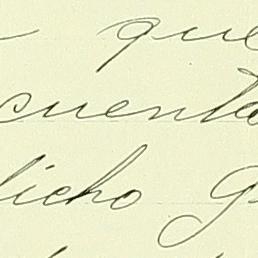 que
cuenta
dicho g